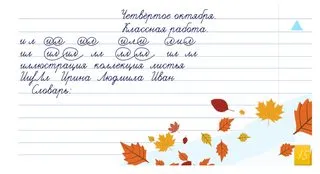 Четвёртое октября.
Классная работа.
и л ил ил или лил
ил ил ил лл лл лл ил лл
иллюстрация коллекция листья
ИиЛл Ирина Людмила Иван
Словарь: